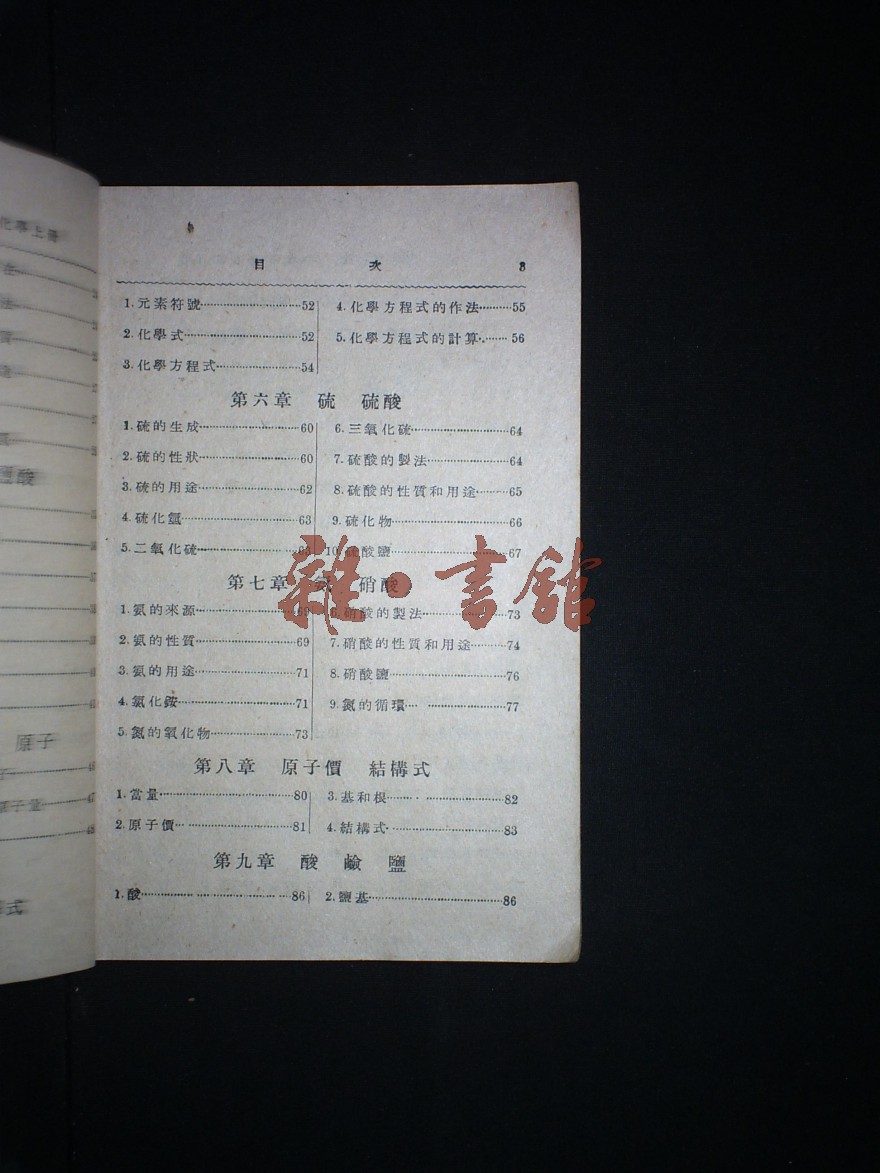 化學上冊
原子
目 次 3
1.元素符號 52
2.化學式 52
3.化學方程式 54
4.化學方程式的作法 55
5.化學方程式的計算 56
第六章 硫 硫酸
1.硫的生成 60
2.硫的性狀 60
3.硫的用途 62
4.硫化氫 63
5.二氧化硫
6.三氧化硫 64
7.硫酸的製法 64
8.硫酸的性質和用途 65
9.硫化物 66
10.硫酸鹽 67
第七章 氨 硝酸
1.氨的來源 69
2.氨的性質 69
3.氨的用途 71
4.氯化銨 71
5.氮的氧化物 73
6.硝酸的製法 73
7.硝酸的性質和用途 74
8.硝酸鹽 76
9.氮的循環 77
第八章 原子價 結構式
1.當量 80
2.原子價 81
3.基和根 82
4.結構式 83
第九章 酸 鹼 鹽
1.酸 86
2.鹽基 86
雜·書館